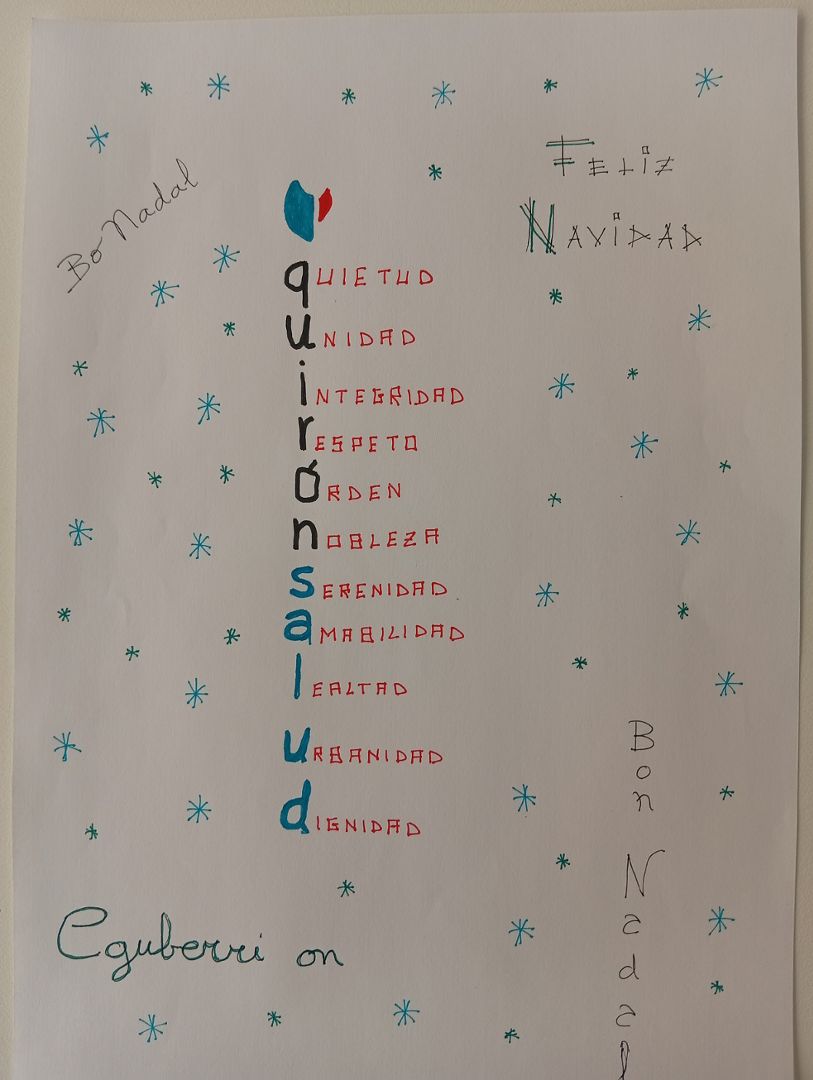 Bo Nadal
Feliz
Navidad
quietud
unidad
integridad
respeto
órden
nobleza
serenidad
amabilidad
lealtad
urbanidad
dignidad
Bon Nadal
Eguberri on